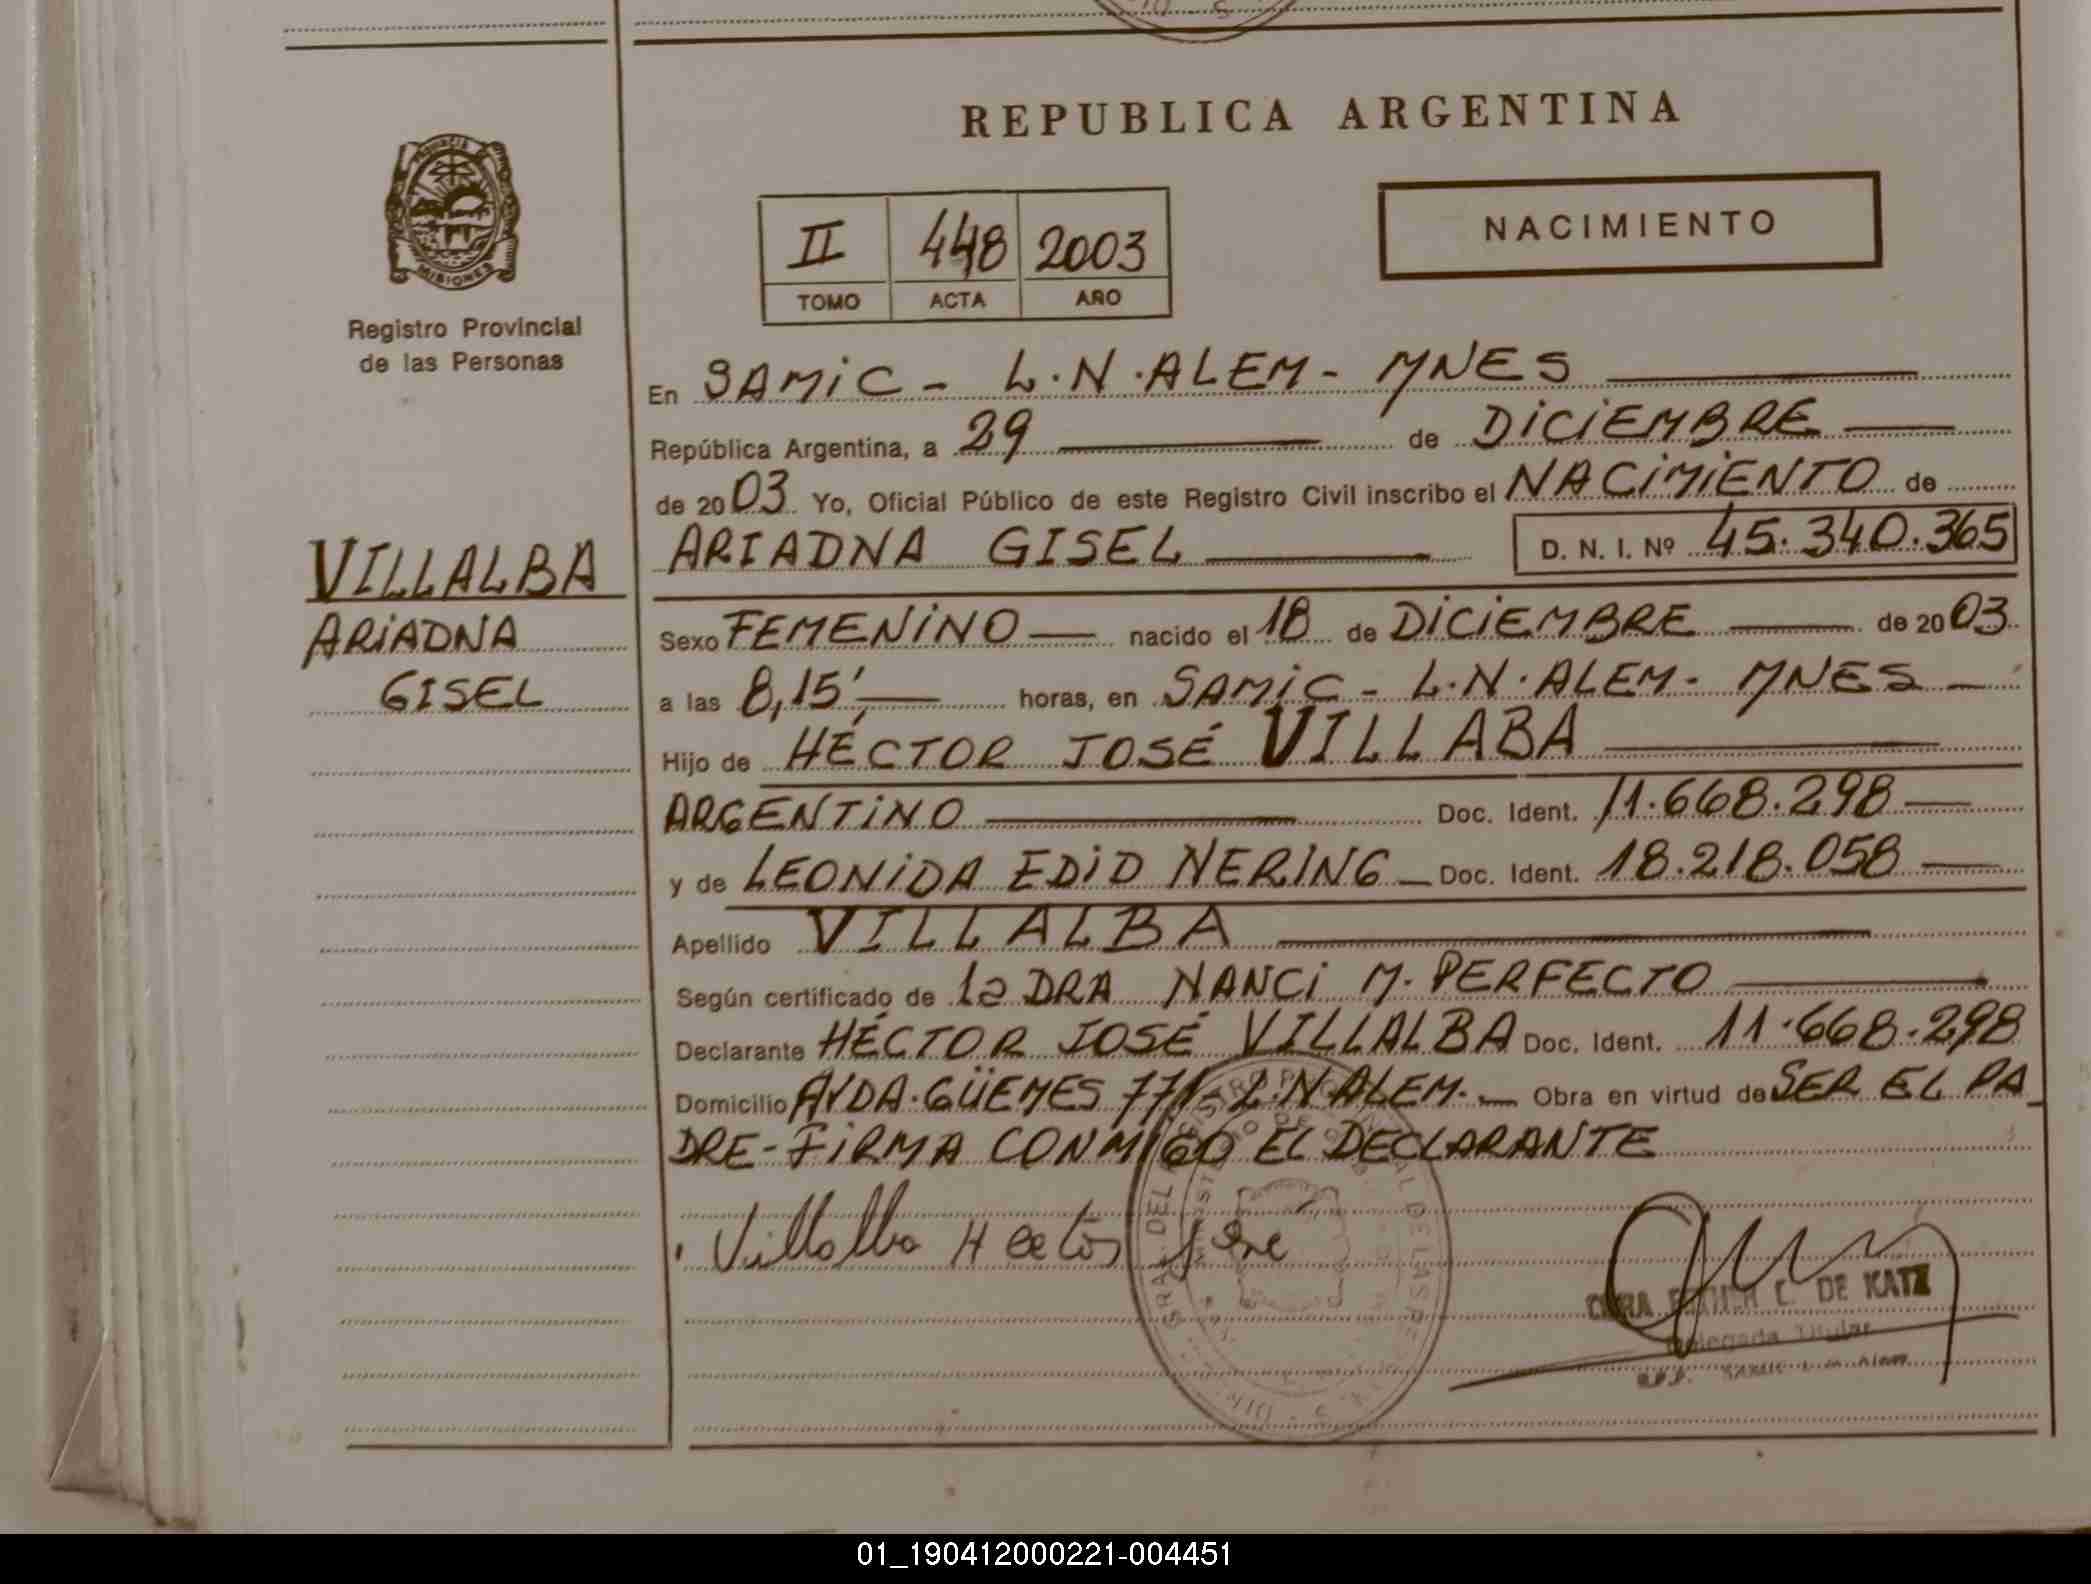 REPUBLICA ARGENTINA
PROVINCIA DE
MISIONES
Registro Provincial
de las Personas
II 448 2003
TOMO ACTA AÑO
NACIMIENTO
En SAMIC - L.N.ALEM - MNES
República Argentina, a 29 de DICIEMBRE
de 2003 Yo, Oficial Público de este Registro Civil inscribo el NACIMIENTO de
ARIADNA GISEL D. N. I. Nº 45.340.365
VILLALBA
ARIADNA
GISEL
Sexo FEMENINO nacido el 18 de DICIEMBRE de 2003
a las 8,15' horas, en SAMIC - L.N.ALEM - MNES
Hijo de HÉCTOR JOSÉ VILLABA
ARGENTINO Doc. Ident. 11.668.298
y de LEONIDA EDID NERING Doc. Ident. 18.218.058
Apellido VILLALBA
Según certificado de la DRA NANCI M. PERFECTO
Declarante HÉCTOR JOSÉ VILLALBA Doc. Ident. 11.668.298
Domicilio AVDA. GÜEMES 771 - L.N ALEM. Obra en virtud de SER EL PA
DRE - FIRMA CONMIGO EL DECLARANTE
Villalba Hector Jose
DE KATZ
Delegada Titular
01_190412000221-004451